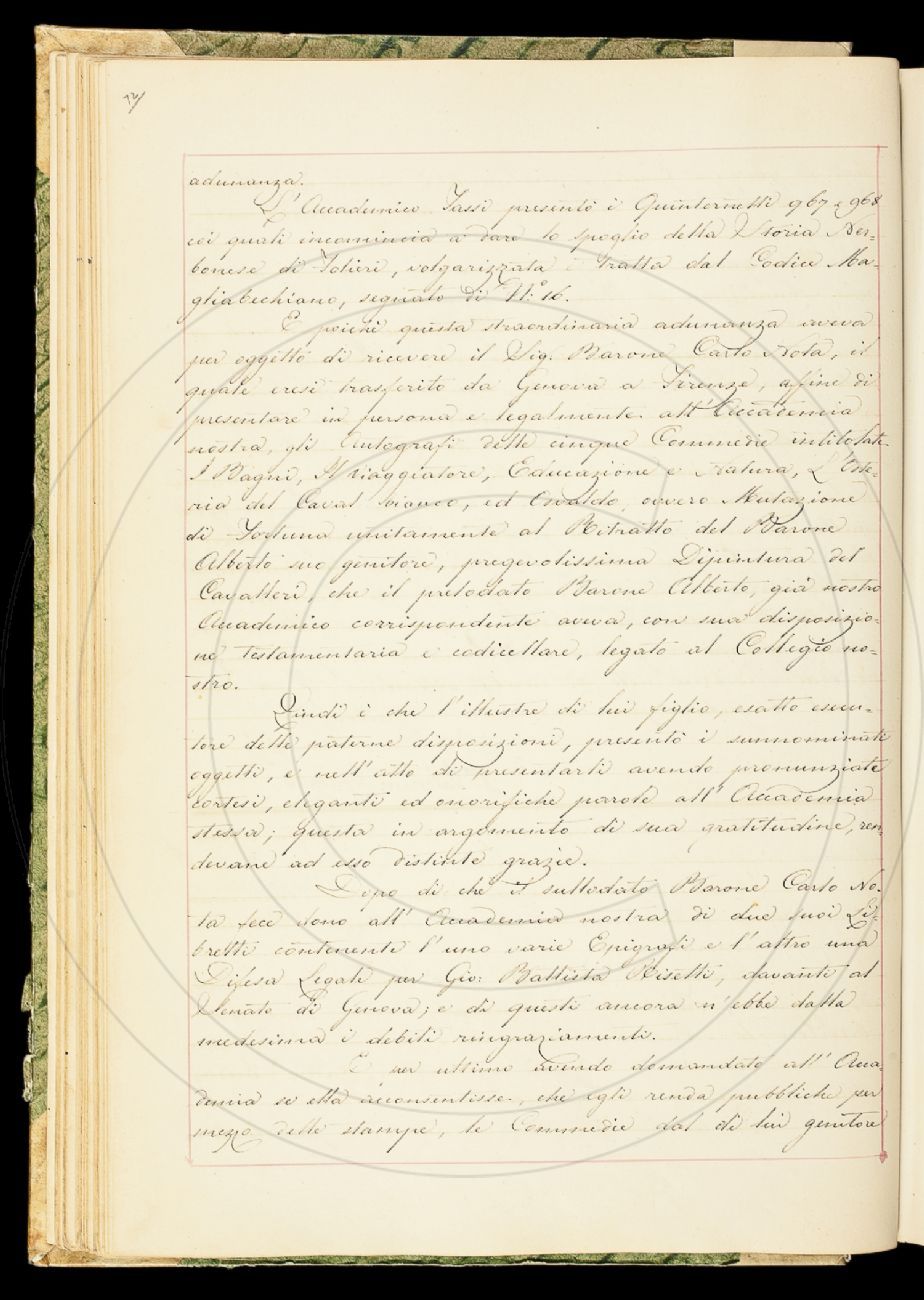 72
adunanza.
L'Accademico Tassi presentò i Quinternetti 967 e 968
coi quali incomincia a dare lo spoglio della Storia Ner=
bonese di Tolieri, volgarizzata e tratta dal Codice Ma=
gliabechiano, segnato di N.º 16.
E poichè questa straordinaria adunanza aveva
per oggetto di ricevere il Sig. Barone Carlo Nota, il
quale eresi trasferito da Genova a Firenze, affine di
presentare in persona e legalmente all'Accademia
nostra, gli Autografi delle cinque Commedie intitolate
I Bagni, Il Viaggiatore, Educazione e Natura, L'Oste=
ria del Caval bianco, ed Osvaldo ovvero Mutazione
di Fortuna unitamente al Ritratto del Barone
Alberto suo genitore, pregevolissima Dipintura del
Cavalleri, che il prelodato Barone Alberto, già nostro
Accademico corrispondente aveva, con sua disposizio=
ne testamentaria e codicillare, legato al Collegio no=
stro.
Quindi è che l'illustre di lui figlio, esatto esecu=
tore delle paterne disposizioni, presentò i sunnominati
oggetti, e nell'atto di presentarli avendo pronunziate
cortesi, eleganti ed onorifiche parole all'Accademia
stessa; questa in argomento di sua gratitudine, ren=
devane ad esso distinte grazie.
Dopo di che il sullodato Barone Carlo No=
ta fece dono all'Accademia nostra di due suoi Li=
bretti contenente l'uno varie Epigrafi e l'altro una
Difesa Legale per Gio: Battista Risetti, davanti al
Senato di Genova; e di questi ancora n'ebbe dalla
medesima i debiti ringraziamenti.
E per ultimo avendo domandato all'Acca=
demia se ella acconsentisse, che egli renda pubbliche per
mezzo delle stampe, le Commedie dal di lui genitore